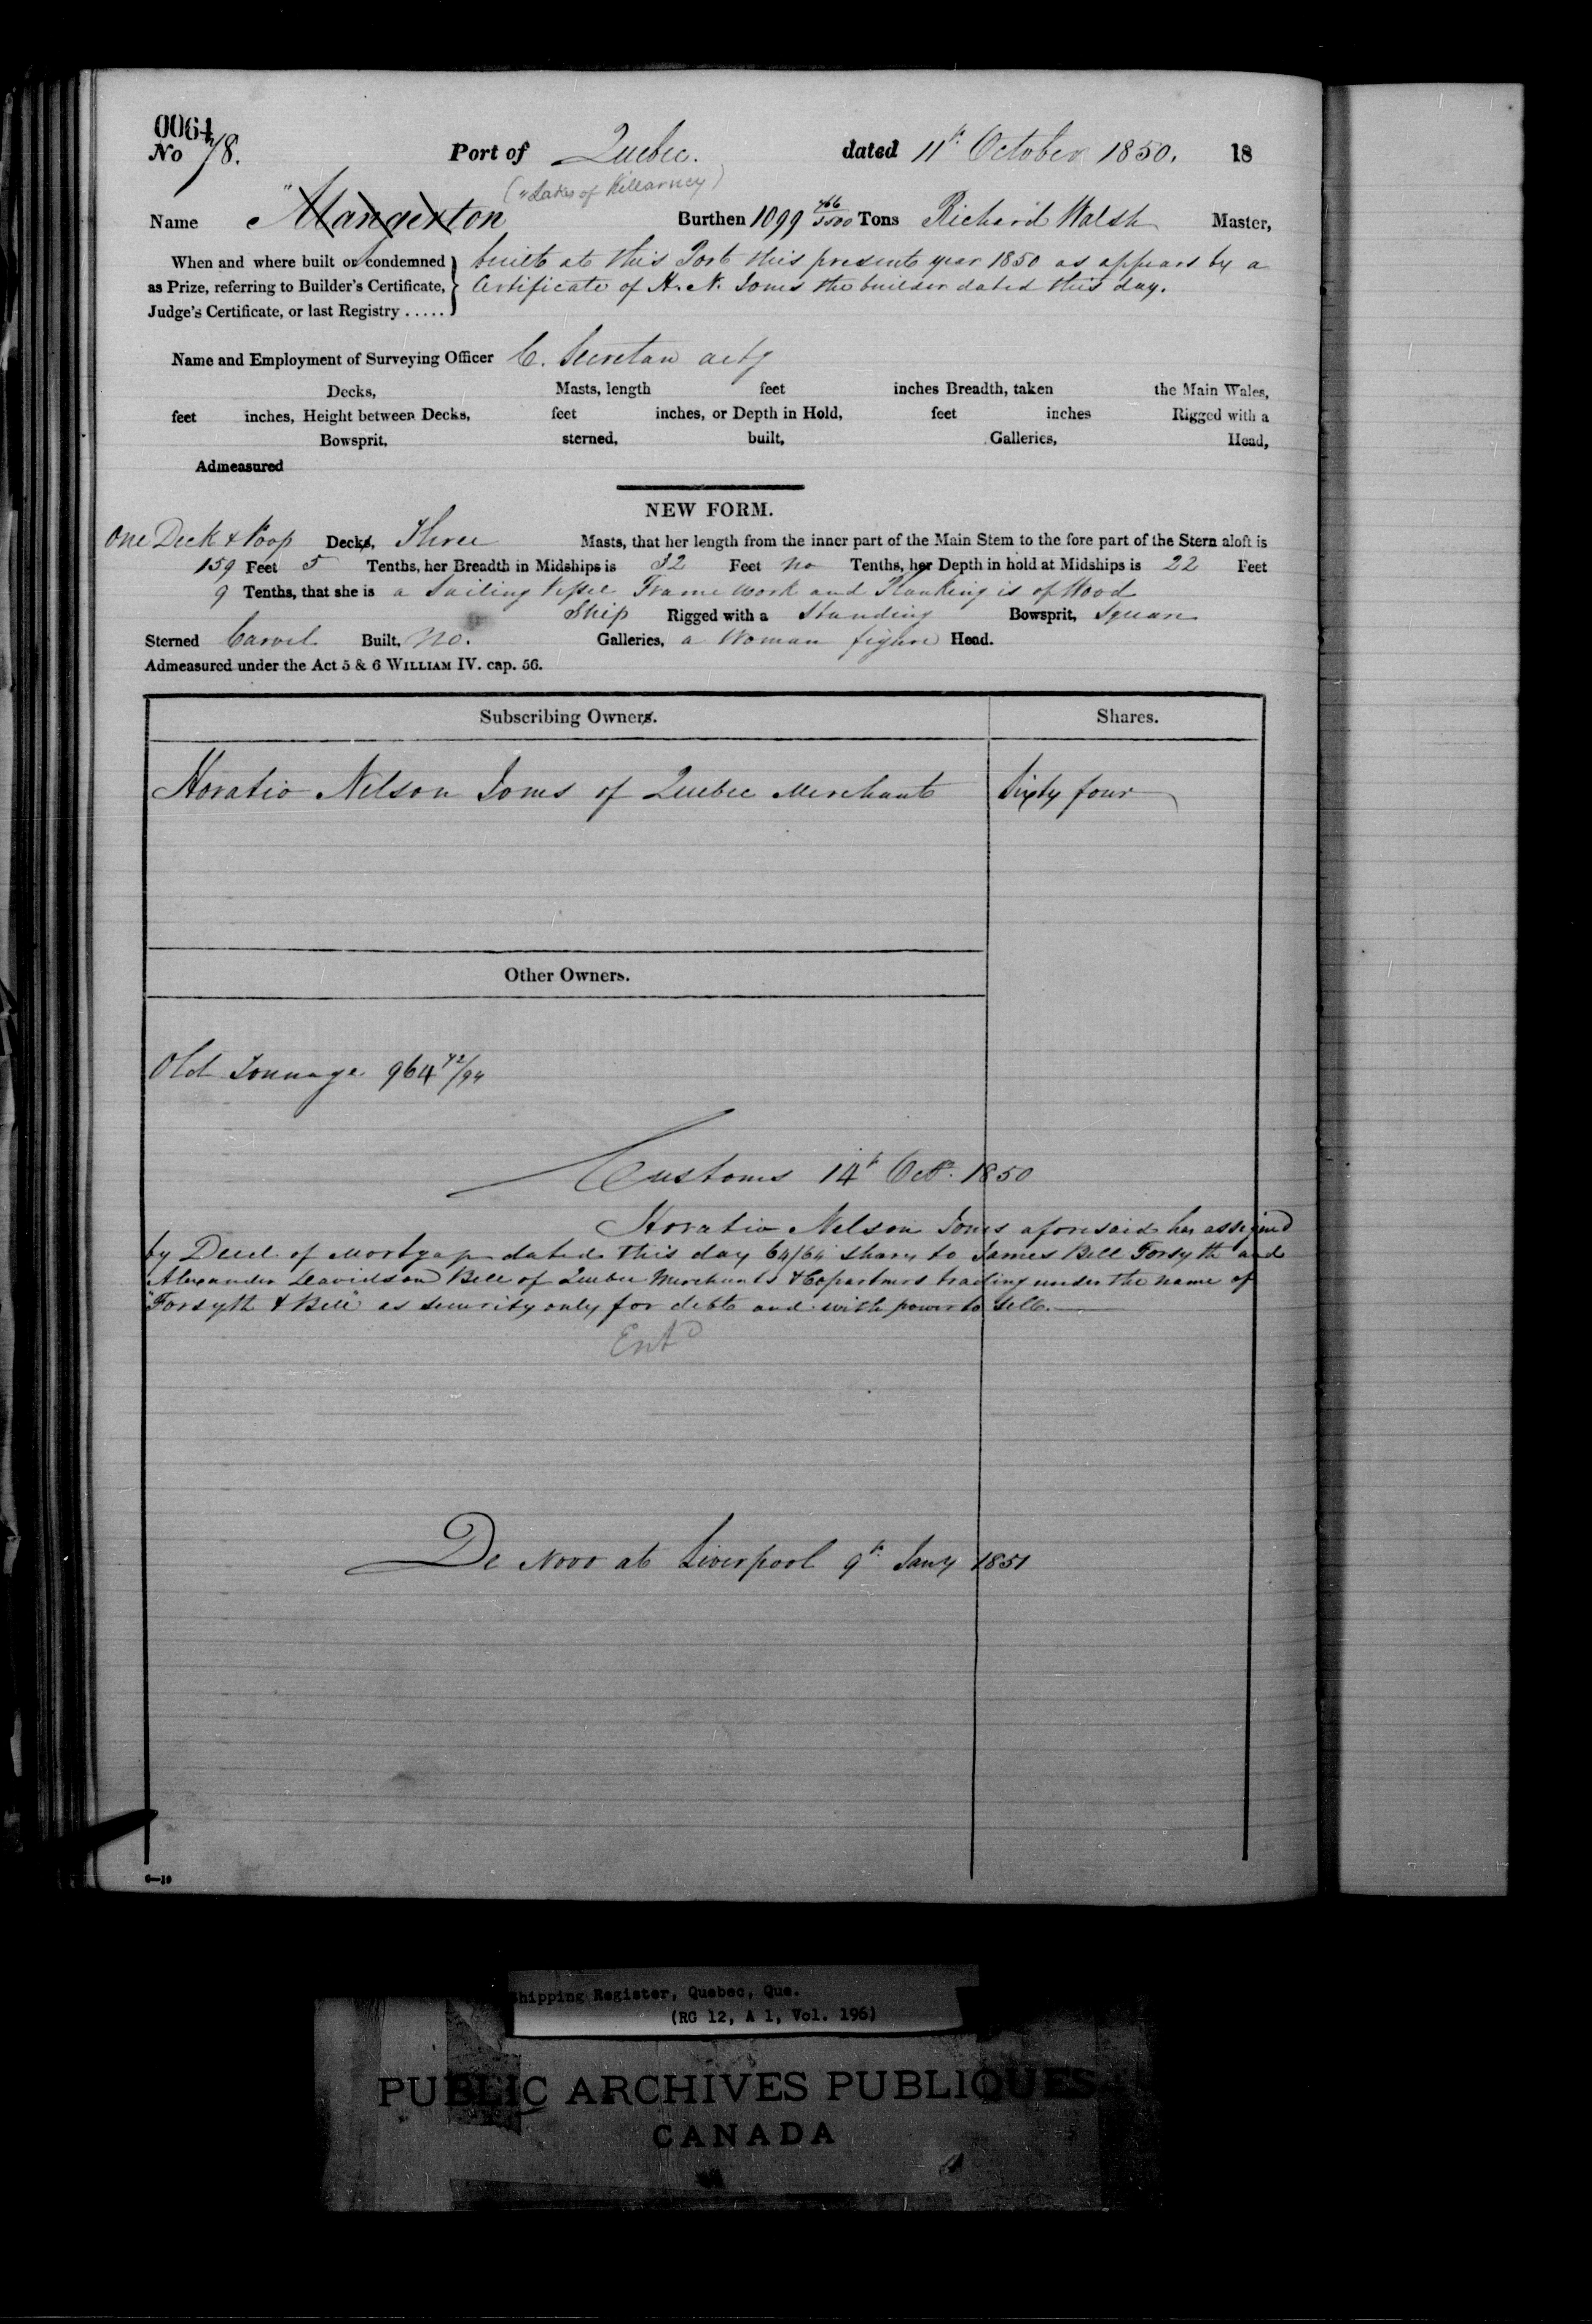 0064
No 78. Port of Quebec. dated 11th October 1850. 18
("Lakes of Killarney)
Name "Mangerton Burthen 1099 466/3500 Tons Richard Walsh Master,
When and where built or condemned as Prize, referring to Builder's Certificate, Judge's Certificate, or last Registry ..... } built at this Port this present year 1850 as appears by a
Certificate of H. N. Jones the builder dated this day.
Name and Employment of Surveying Officer C. Secretan actg
Decks, Masts, length feet inches Breadth, taken the Main Wales,
feet inches, Height between Decks, feet inches, or Depth in Hold, feet inches Rigged with a
Bowsprit, sterned, built, Galleries, Head,
Admeasured
NEW FORM.
One Deck & Poop Decks, Three Masts, that her length from the inner part of the Main Stem to the fore part of the Stern aloft is
159 Feet 5 Tenths, her Breadth in Midships is 32 Feet no Tenths, her Depth in hold at Midships is 22 Feet
9 Tenths, that she is a Sailing Vessel Frame work and Planking is of Wood
Ship Rigged with a Standing Bowsprit, Square
Sterned Carvel Built, no. Galleries, a Woman figure Head.
Admeasured under the Act 5 & 6 WILLIAM IV. cap. 56.
Subscribing Owners. Shares.
Horatio Nelson Jones of Quebec Merchant Sixty four
Other Owners.
Old Tonnage 964 72/94
Customs 14th Octr. 1850
Horatio Nelson Jones aforesaid has assigned
by Deed of Mortgage dated this day 64/64 shares to James Bell Forsyth and
Alexander Davidson Bell of Quebec Merchants & Copartners trading under the name of
"Forsyth & Bell" as security only for debt and with power to sell.
Entd
De Novo at Liverpool 9th Jany 1851
6—19
Shipping Register, Quebec, Que.
(RG 12, A 1, Vol. 196)
PUBLIC ARCHIVES PUBLIQUES
CANADA